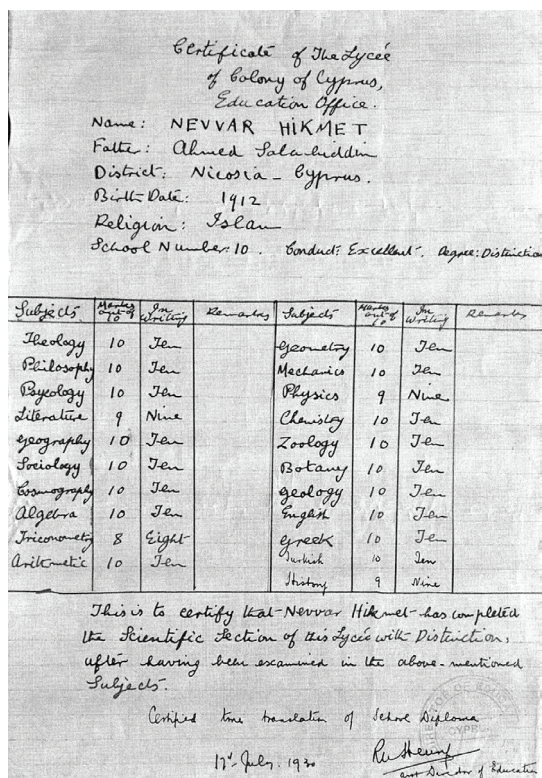 Certificate of The Lycée
of Colony of Cyprus,
Education Office.
Name: NEVVAR HIKMET
Father: Ahmed Salahiddin
District: Nicosia - Cyprus.
Birth Date: 1912
Religion: Islam
School Number: 10. Conduct: Excellent. Degree: Distinction
Subjects Marks out of 10 In Writing Remarks Subjects Marks out of 10 In Writing Remarks
Theology 10 Ten Geometry 10 Ten
Philosophy 10 Ten Mechanics 10 Ten
Psycology 10 Ten Physics 9 Nine
Literature 9 Nine Chemistry 10 Ten
Geography 10 Ten Zoology 10 Ten
Sociology 10 Ten Botany 10 Ten
Cosmography 10 Ten Geology 10 Ten
Algebra 10 Ten English 10 Ten
Triconometry 8 Eight Greek 10 Ten
Aritmetic 10 Ten Turkish 10 Ten
History 9 Nine
This is to certify that Nevvar Hikmet has completed
the Scientific Section of this Lycée with Distinction,
after having been examined in the above-mentioned
Subjects.
Certified true translation of School Diploma
July. 1930
Director of Education
CYPRUS